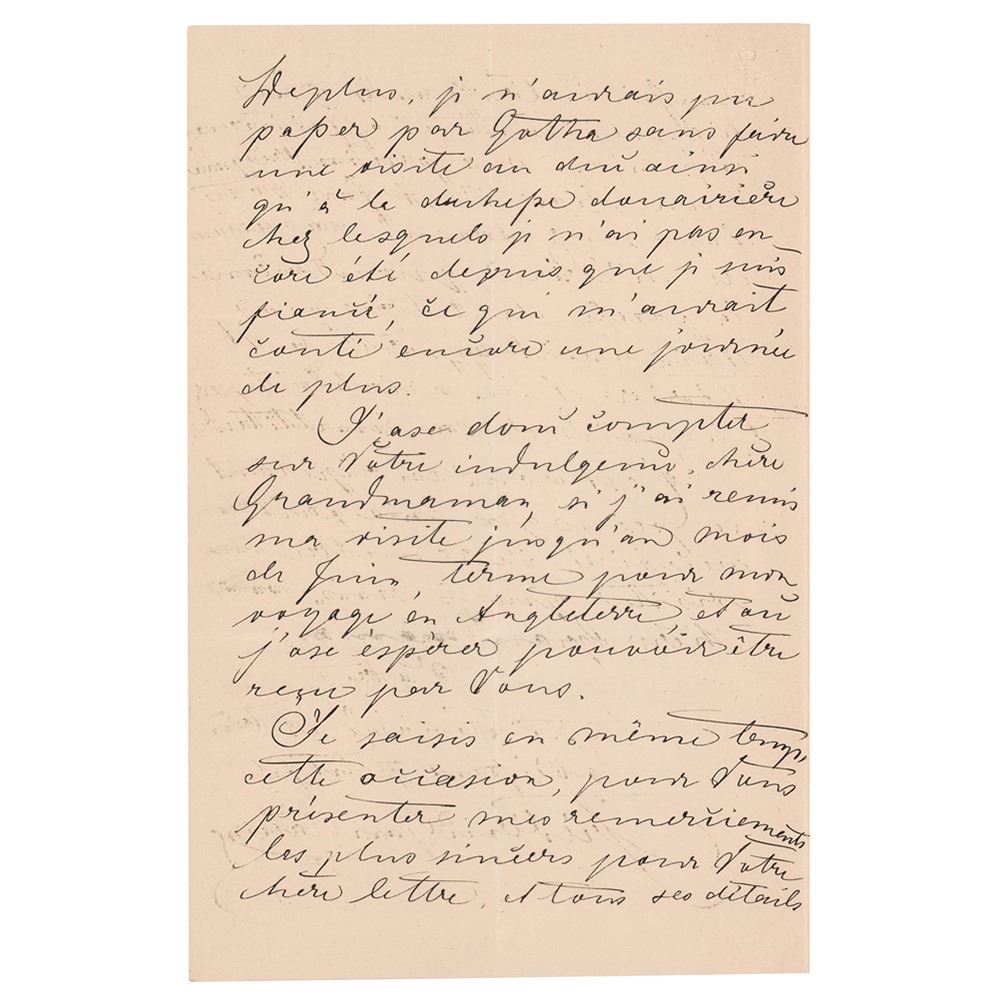 De plus, je n'aurais pu
passer par Gotha sans faire
une visite au duc ainsi
qu'à la duchesse douairière
chez lesquels je n'ai pas en-
core été depuis que je suis
fiancé, ce qui m'aurait
couté encore une journée
de plus.
J'ose donc compter
sur Votre indulgence, chère
Grandmaman, si j'ai remis
ma visite jusqu'au mois
de Juin terme pour mon
voyage en Angleterre, et où
j'ose espérer pouvoir être
reçu par Vous.
Je saisis en même temps
cette occasion, pour Vous
présenter mes remerciements
les plus sincères pour Votre
chère lettre, et tous ses détails